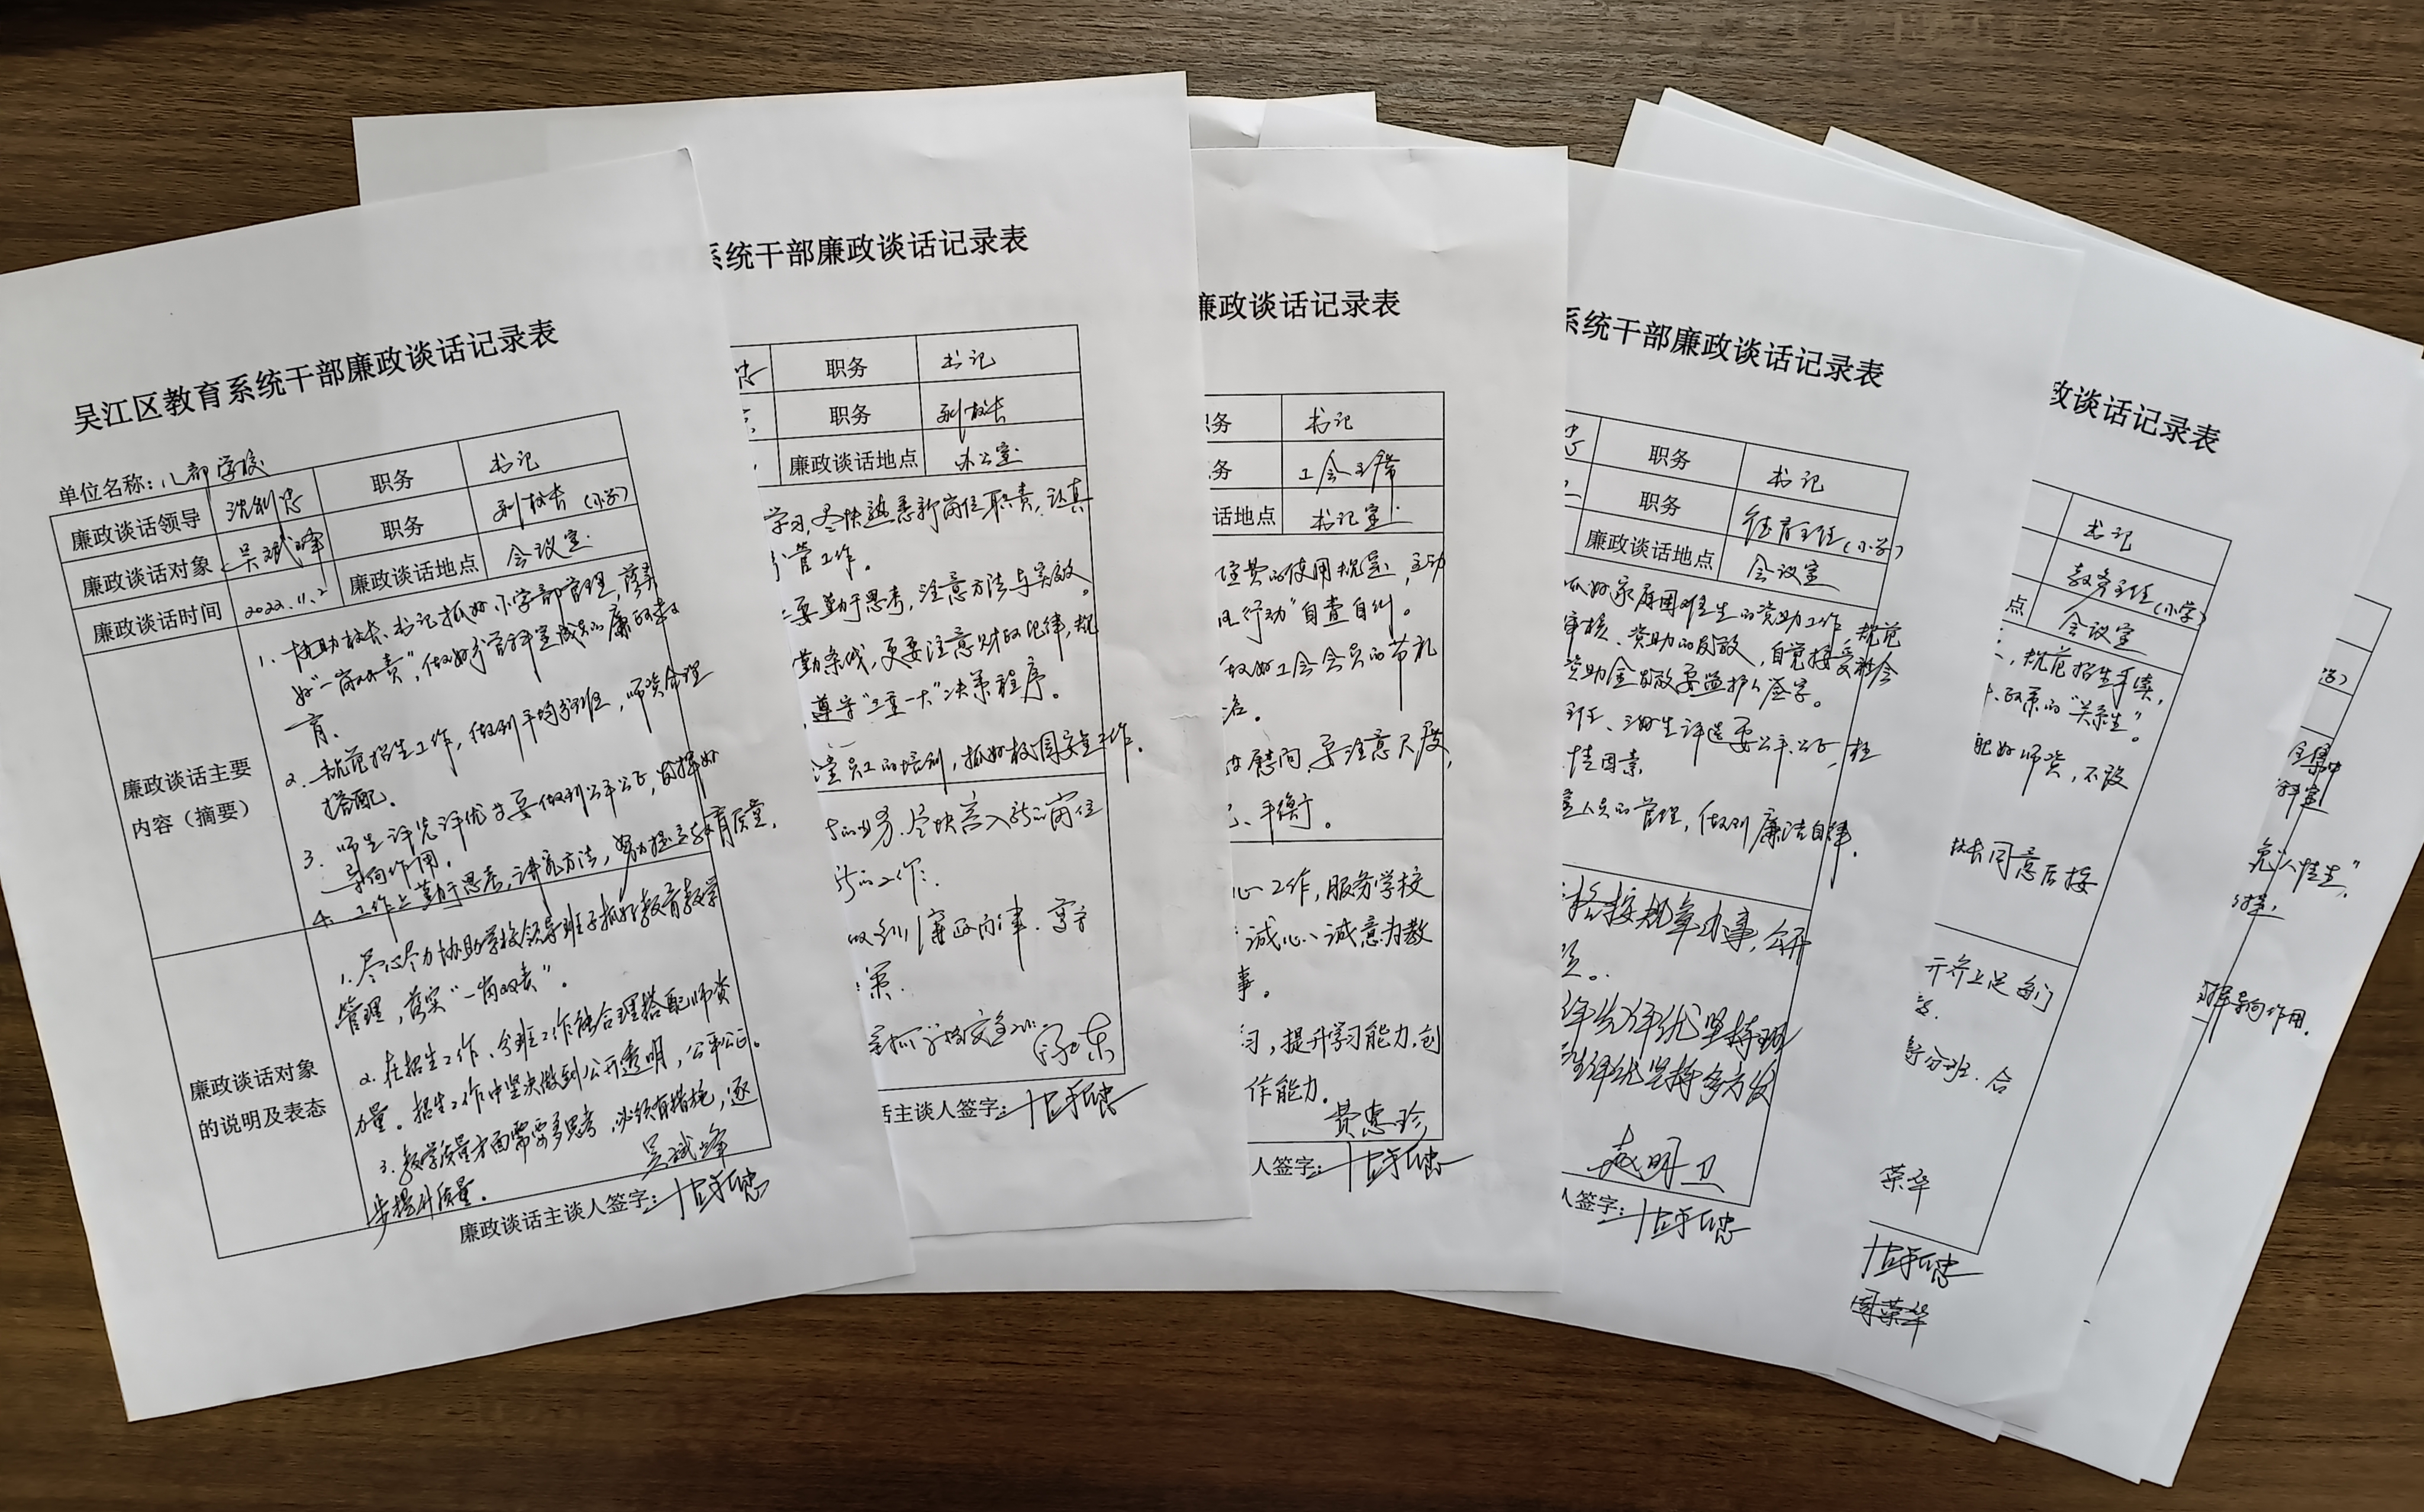 吴江区教育系统干部廉政谈话记录表
单位名称：八都学校
廉政谈话领导 职务 书记
廉政谈话对象 吴斌峰 职务 副校长（小学）
廉政谈话时间 2022.11.2 廉政谈话地点 会议室
廉政谈话主要
内容（摘要）
1. 协助校长、书记抓好小学部管理，落实
好“一岗双责”，做好分管科室成员的廉政教
育。
2. 规范招生工作，做到平均分班，师资合理
搭配。
3. 师生评先评优要做到公平公正，发挥好
导向作用。
4. 工作上勤于思考，讲究方法，努力提高教育质量。
廉政谈话对象
的说明及表态
1. 尽心尽力协助学校领导班子抓好教育教学
管理，落实“一岗双责”。
2. 在招生工作、分班工作能合理搭配师资
力量。招生工作中坚决做到公开透明，公平公正。
3. 教学质量方面需要多思考，必须有措施，逐
步提升质量。
吴斌峰
廉政谈话主谈人签字：
系统干部廉政谈话记录表
职务 书记
职务 副校长
廉政谈话地点 办公室
学习，尽快熟悉新岗位职责，认真
分管工作。
要勤于思考，注意方法与实效。
勤条线，更要注意财政纪律，规
，遵守“三重一大”决策程序。
员工的培训，抓好校园安全工作。
的业务，尽快进入新的岗位
新的工作。
策。
话主谈人签字：
廉政谈话记录表
务 书记
务 工会主席
话地点 书记室
经费的使用规定，主动
风行动”自查自纠。
做好工会会员的节礼
慰问，要注意尺度，
、平衡。
心工作，服务学校
诚心、诚意为教
事。
习，提升学习能力，创
作能力。
费惠珍
人签字：
系统干部廉政谈话记录表
职务 书记
职务 德育主任（小学）
廉政谈话地点 会议室
抓好家庭困难生的资助工作，规范
审核、资助的发放，自觉接受社会
资助金发放要监护人签字。
班、三好生评选要公平公正，杜
情因素
人员的管理，做到廉洁自律。
格按规章办事，公开
评先评优坚持
生评优坚持多方发
赵明卫
人签字：
政谈话记录表
书记
教务主任（小学）
点 会议室
，规范招生手续，
政策的“关系生”。
配好师资，不设
校长同意后接
开齐上足每门
分班，合
荣华
周荣华
免“人情生”，
导向作用。